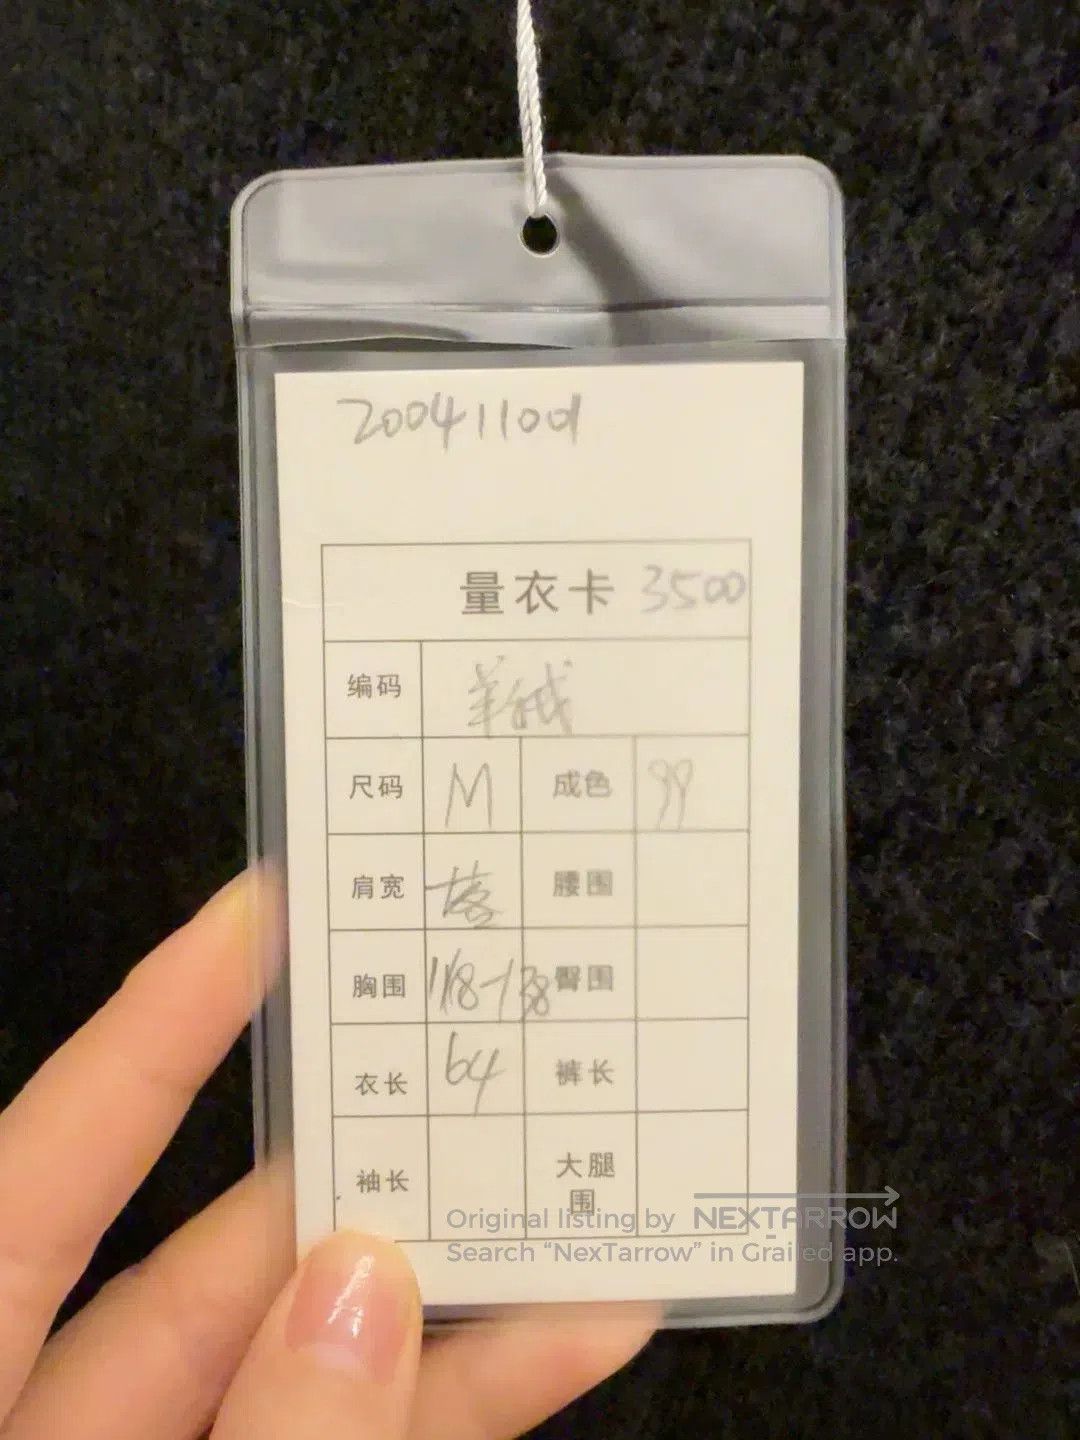 200411001
量衣卡 3500
编码 羊绒
尺码 M 成色 99
肩宽 落 腰围
胸围 118-138 臀围
衣长 64 裤长
袖长 大腿围
Original listing by NEXTARROW
Search “NexTarrow” in Grailed app.